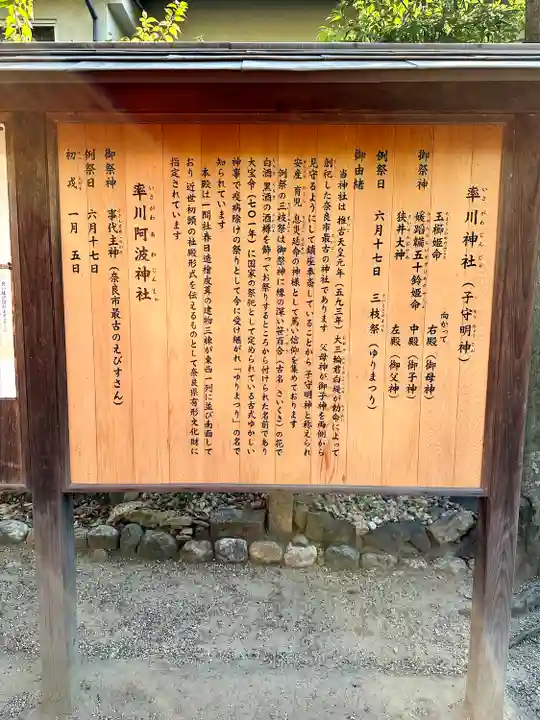 率川神社（子守明神）
いさがわじんじゃ
向かって
御祭神 玉櫛姫命 右殿（御母神）
媛蹈韛五十鈴姫命 中殿（御子神）
狭井大神 左殿（御父神）
例祭日 六月十七日 三枝祭（ゆりまつり）
御由緒
当神社は 推古天皇元年（五九三年）大三輪君白堤が勅命によって
創祀した奈良市最古の神社であります 父母神が御子神を両側から
見守るようにして鎮座奉斎していることから 子守明神と称えられ
安産 育児 息災延命の神様として篤い信仰を集めております
例祭の三枝祭は御祭神に縁の深い笹百合（古名 さいくさ）の花で
白酒 黒酒の酒罇を飾ってお祭りするところから付けられた名前であり
大宝令（七〇一年）に国家の祭祀として定められている古式ゆかしい
神事で疫病除けの祭りとして今に受け継がれ「ゆりまつり」の名で
知られています
本殿は一間社春日造檜皮葺の建物三棟が東西一列に並び南面して
おり 近世初頭の社殿形式を伝えるものとして奈良県有形文化財に
指定されています
率川阿波神社
いさがわあわじんじゃ
御祭神 事代主神（奈良市最古のえびすさん）
例祭日 六月十七日
初戎 一月 五日